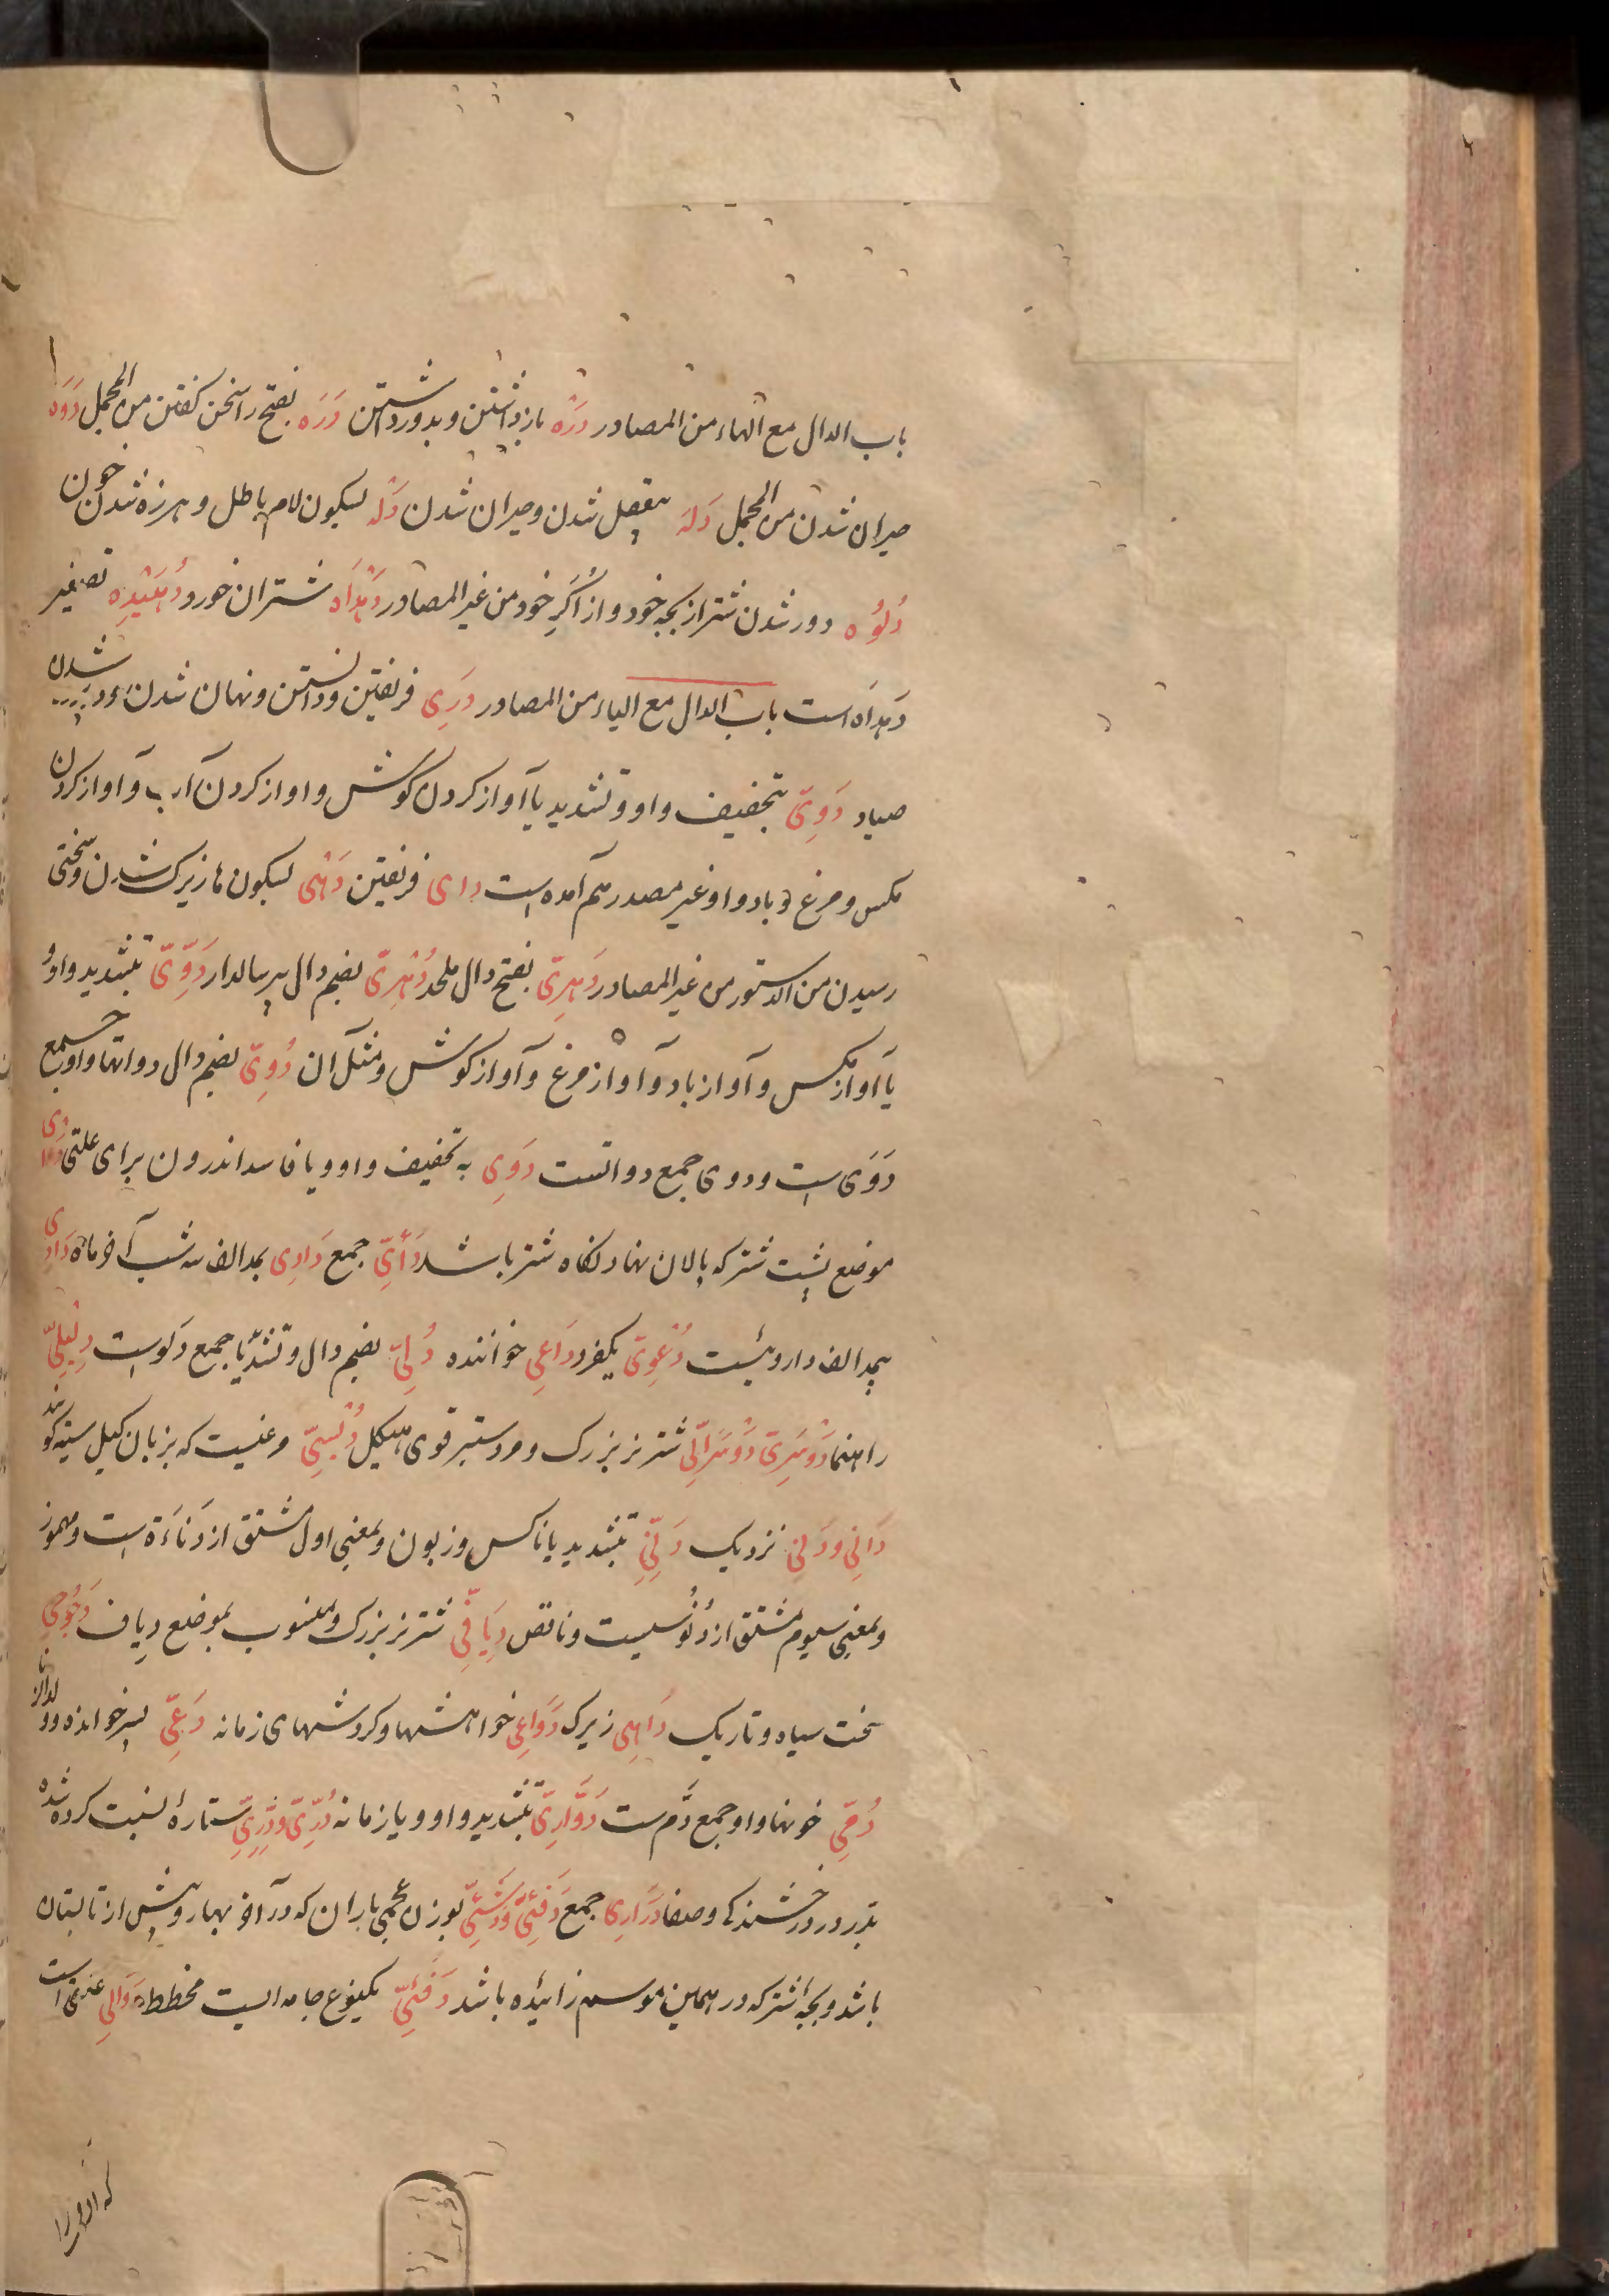 باب الدال مع الهاء من المصادر دَرْه بازداشتن و بدور داشتن دَرَه بفتح را سخن كفتن من المجمل دَوَه
حیران شدن من المجمل دَلَه بیعقل شدن و حیران شدن دَلْه بسکون لام باطل و هرزه شدن خون
دُلُوْه دور شدن شتر از بچه خود و از اُكَرِ خود من غیر المصادر دَهْدَاه شتران خورد دُهَیْدِه تصغیر
دَهدَاه است باب الدال مع الیاء من المصادر دَرِی فریفتن و دانستن و نهان شدن شدن
صیاد دَوِیّ بتخفیف واو و تشدید یا آواز کردن کوش و اواز کردن آن و آواز کردن
مکس و مرغ و باد و او غیر مصدر هم آمده است دای فریفتن دَهْی بسکون ها زیرک شدن و سختی
رسیدن من الدستور من غیر المصادر دَهرِیّ بفتح دال ملحد دُهْرِیّ بضم دال پیر سالدار دَوِّیّ بتشدید واو و
یا آواز مکس و آواز باد و آواز مرغ و آواز کوش و مثل آن دُوِیّ بضم دال دواتها و او جمع
دَوَی است و دوی جمع دواتست دَوِی به تخفیف واو و یا فاسد اندرون برای علتی
موضع پشت شتر که پالان نهاد نکاه شتر باشد دَأیّ جمع دَادِی بمد الف سه شب آخر ماه دَادِی
بمد الف داروئیست دُعْوِیّ یکفرد دَاعِی خواننده دُلِیّ بضم دال و تشدید یا جمع دَلو است دِلِّیلِیّ
راهنما دَوسَرِیّ دَوسَرَانِیّ شتر نر بزرک و مرد ستبر قوی هیکل دُبْسِیّ مرغیست که بزبان کیل سیته کویند
دَانِی و دَنِی نزدیک دَنِیّ بتشدید یا ناکس و زبون و بمعنی اول مشتق از دَنَاءَة است و مهموز
و بمعنی سیوم مشتق از دُنُوّ است و ناقص دِیَافِیّ شتر نر بزرک و منسوب بموضع دیاف دَجُوجِیّ
سخت سیاه و تاریک دَاهِی زیرک دَوَاعِی خواهشها و کردشهای زمانه دَعِیّ پسر خوانده و
دُمِیّ خونها و او جمع دَم ست دَوَّارِیّ بتشدید واو و یا زمانه دُرِّیّ و دِرِّیّ ستارۀ نسبت کرده شده
بدر در درخشندکی و صفا دَرَارِی جمع دَفَئِیّ وَدَثَئِیّ بوزن عجمی باران که در آخر بهار و پیش از تابستان
باشد و بچه اشتر که در همین موسم زائیده باشد دَفَئِیّ یکنوع جامه ایست مخطط دَوَالِی علتی است
که او را